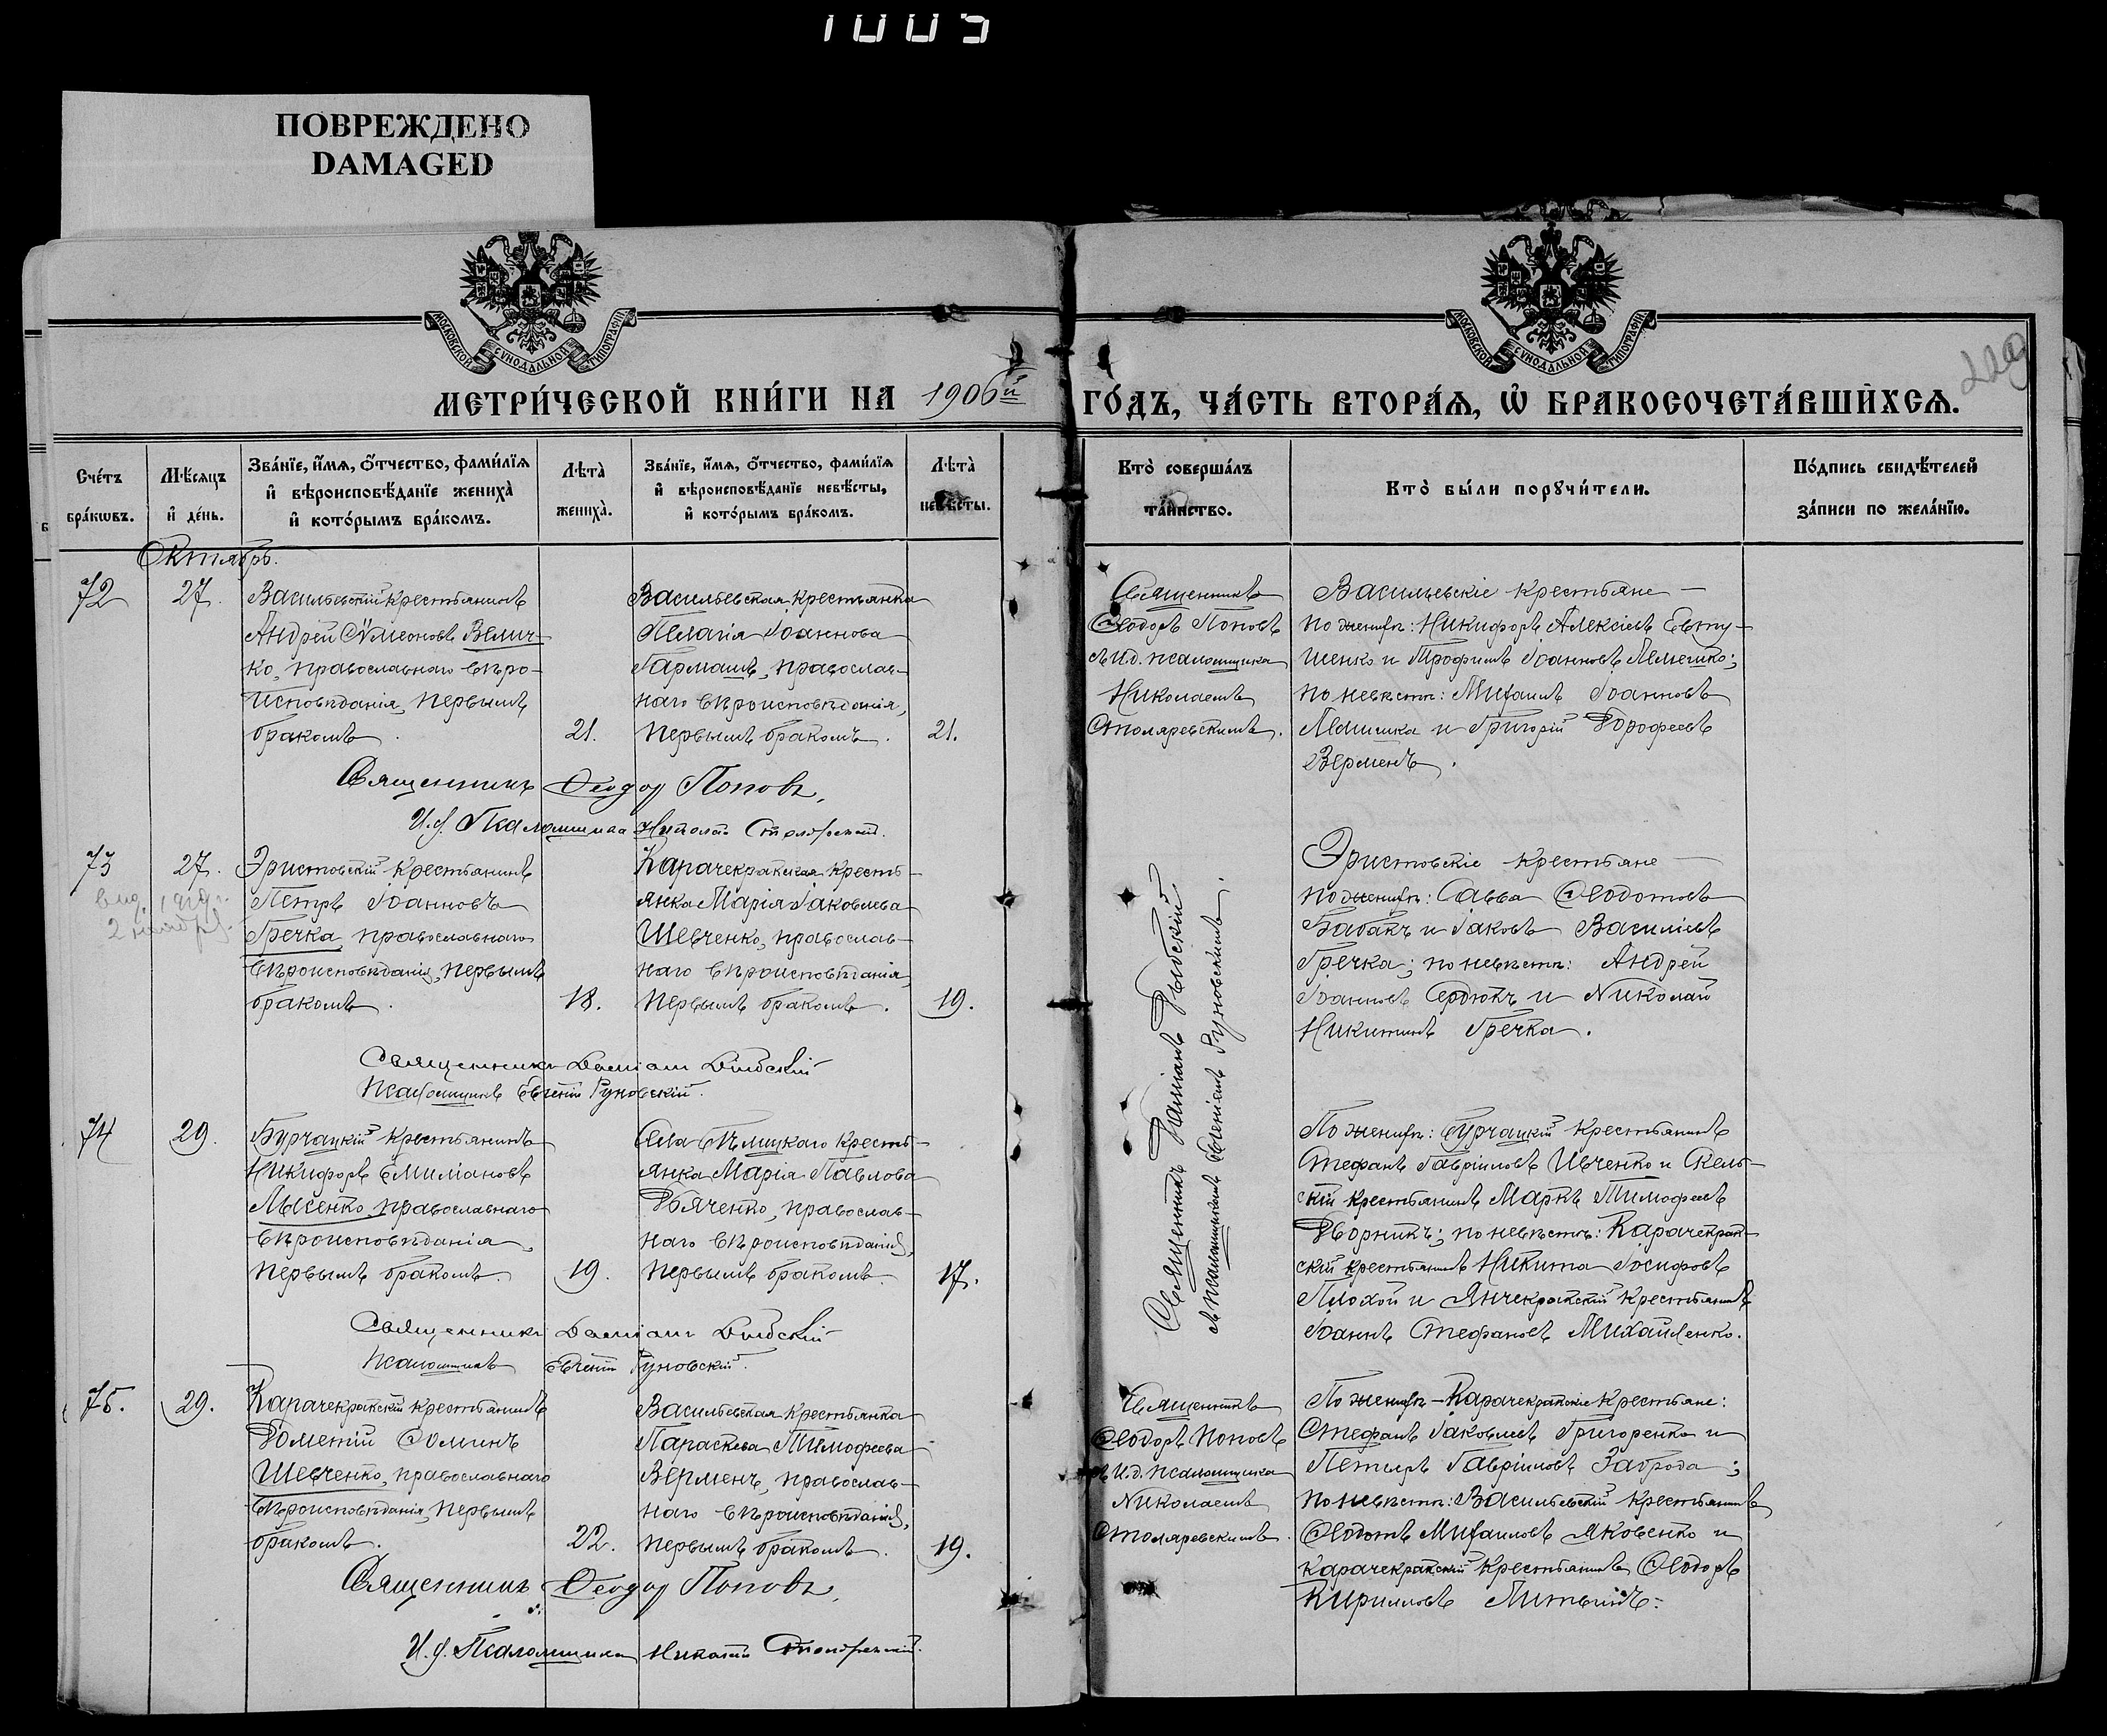 1005
ПОВРЕЖДЕНО
DAMAGED
МОСКОВСКОЙ СѴНОДАЛЬНОЙ ТИПОГРАФІИ
МОСКОВСКОЙ СѴНОДАЛЬНОЙ ТИПОГРАФІИ
МЕТРИ́ЧЕСКОЙ КНИ́ГИ НА 1906й ГО́ДЪ, ЧА́СТЬ ВТОРА́Я, Ѡ БРАКОСОЧЕТА́ВШИХСЯ.
Сче́тъ
бра́кѡвъ.
Мѣ́сяцъ
и҆ де́нь.
Зва́нїе, и҆́мя, ѻ҆́тчество, фами́лїя
и҆ вѣроисповѣ́данїе жениха̀
и҆ кото́рымъ бра́комъ.
Лѣта̀
жениха̀.
Зва́нїе, и҆́мя, ѻ҆́тчество, фами́лїя
и҆ вѣроисповѣ́данїе невѣ́сты,
и҆ кото́рымъ бра́комъ.
Лѣта̀
невѣ́сты.
Кто̀ соверша́лъ
та́инство.
Кто̀ бы́ли порꙋчи́тели.
По́дпись свидѣ́телей
за́писи по жела́нїю.
Октябрь.
72
27.
Васильевскій крестьянинъ
Андрей Сѵмеоновъ Велич-
ко, православнаго вѣро-
исповѣданія, первымъ
бракомъ.
21.
Васильевская крестьянка
Пелагія Іоаннова
Гармашъ, православ-
наго вѣроисповѣданія,
первымъ бракомъ.
21.
Священникъ
Ѳеодоръ Поповъ
съ И.д. псаломщика
Николаемъ
Столяревскимъ.
Васильевскіе крестьяне —
по женихѣ: Никифоръ Алексіевъ Евту-
шенко и Трофимъ Іоанновъ
по невѣстѣ: Михаилъ Іоанновъ
и Григорій Дорофеевъ
Верменъ.
Священникъ Ѳеодоръ Поповъ.
И.д. Псаломщика Николай Столяревскій.
73
27.
2 ноября.
Эристовскій крестьянинъ
Петръ Іоанновъ
Гречка, православнаго
вѣроисповѣданія, первымъ
бракомъ.
18.
Карачекракская кресть-
янка Марія Іаковлева
Шевченко, православ-
наго вѣроисповѣданія,
первымъ бракомъ.
19.
Священникъ Даміанъ Дибскій
съ псаломщикомъ Евгеніемъ Руновскимъ.
Эристовскіе крестьяне —
по женихѣ: Савва Ѳеодотовъ
Бабакъ и Іаковъ Василіевъ
Гречка; по невѣстѣ: Андрей
Іоанновъ Сердюкъ и Николай
Никитинъ Гречка.
Священникъ Даміанъ Дибскій
Псаломщикъ Евгеній Руновскій.
74
29.
Бурчацкій крестьянинъ
Никифоръ Емиліановъ
Лысенко, православнаго
вѣроисповѣданія,
первымъ бракомъ.
19.
Села Бѣлицкаго кресть-
янка Марія Павлова
Дьяченко, православ-
наго вѣроисповѣданія,
первымъ бракомъ.
17.
По женихѣ: Бурчацкій крестьянинъ
Стефанъ Гавріиловъ Ивченко и Скель-
скій крестьянинъ Маркъ Тимофеевъ
Дворникъ; по невѣстѣ: Карачекрак-
скій крестьянинъ Никита Іосифовъ
Плохой и Янчекракскій крестьянинъ
Іоаннъ Стефановъ Михайленко.
Священникъ Даміанъ Дибскій
Псаломщикъ Евгеній Руновскій.
75.
29.
Карачекракскій крестьянинъ
Дометій Ѳоминъ
Шевченко, православнаго
вѣроисповѣданія, первымъ
бракомъ.
22.
Васильевская крестьянка
Параскева Тимофеева
Верменъ, православ-
наго вѣроисповѣданія,
первымъ бракомъ.
19.
Священникъ
Ѳеодоръ Поповъ
съ И.д. псаломщика
Николаемъ
Столяревскимъ.
По женихѣ — Карачекракскіе крестьяне:
Стефанъ Іаковлевъ Григоренко и
Петръ Гавріиловъ Заброда;
по невѣстѣ: Васильевскій крестьянинъ
Ѳеодотъ Михаиловъ Яковенко и
Карачекракскій крестьянинъ Ѳеодоръ
Кирилловъ
Священникъ Ѳеодоръ Поповъ.
И.д. Псаломщика Николай Столяревскій.